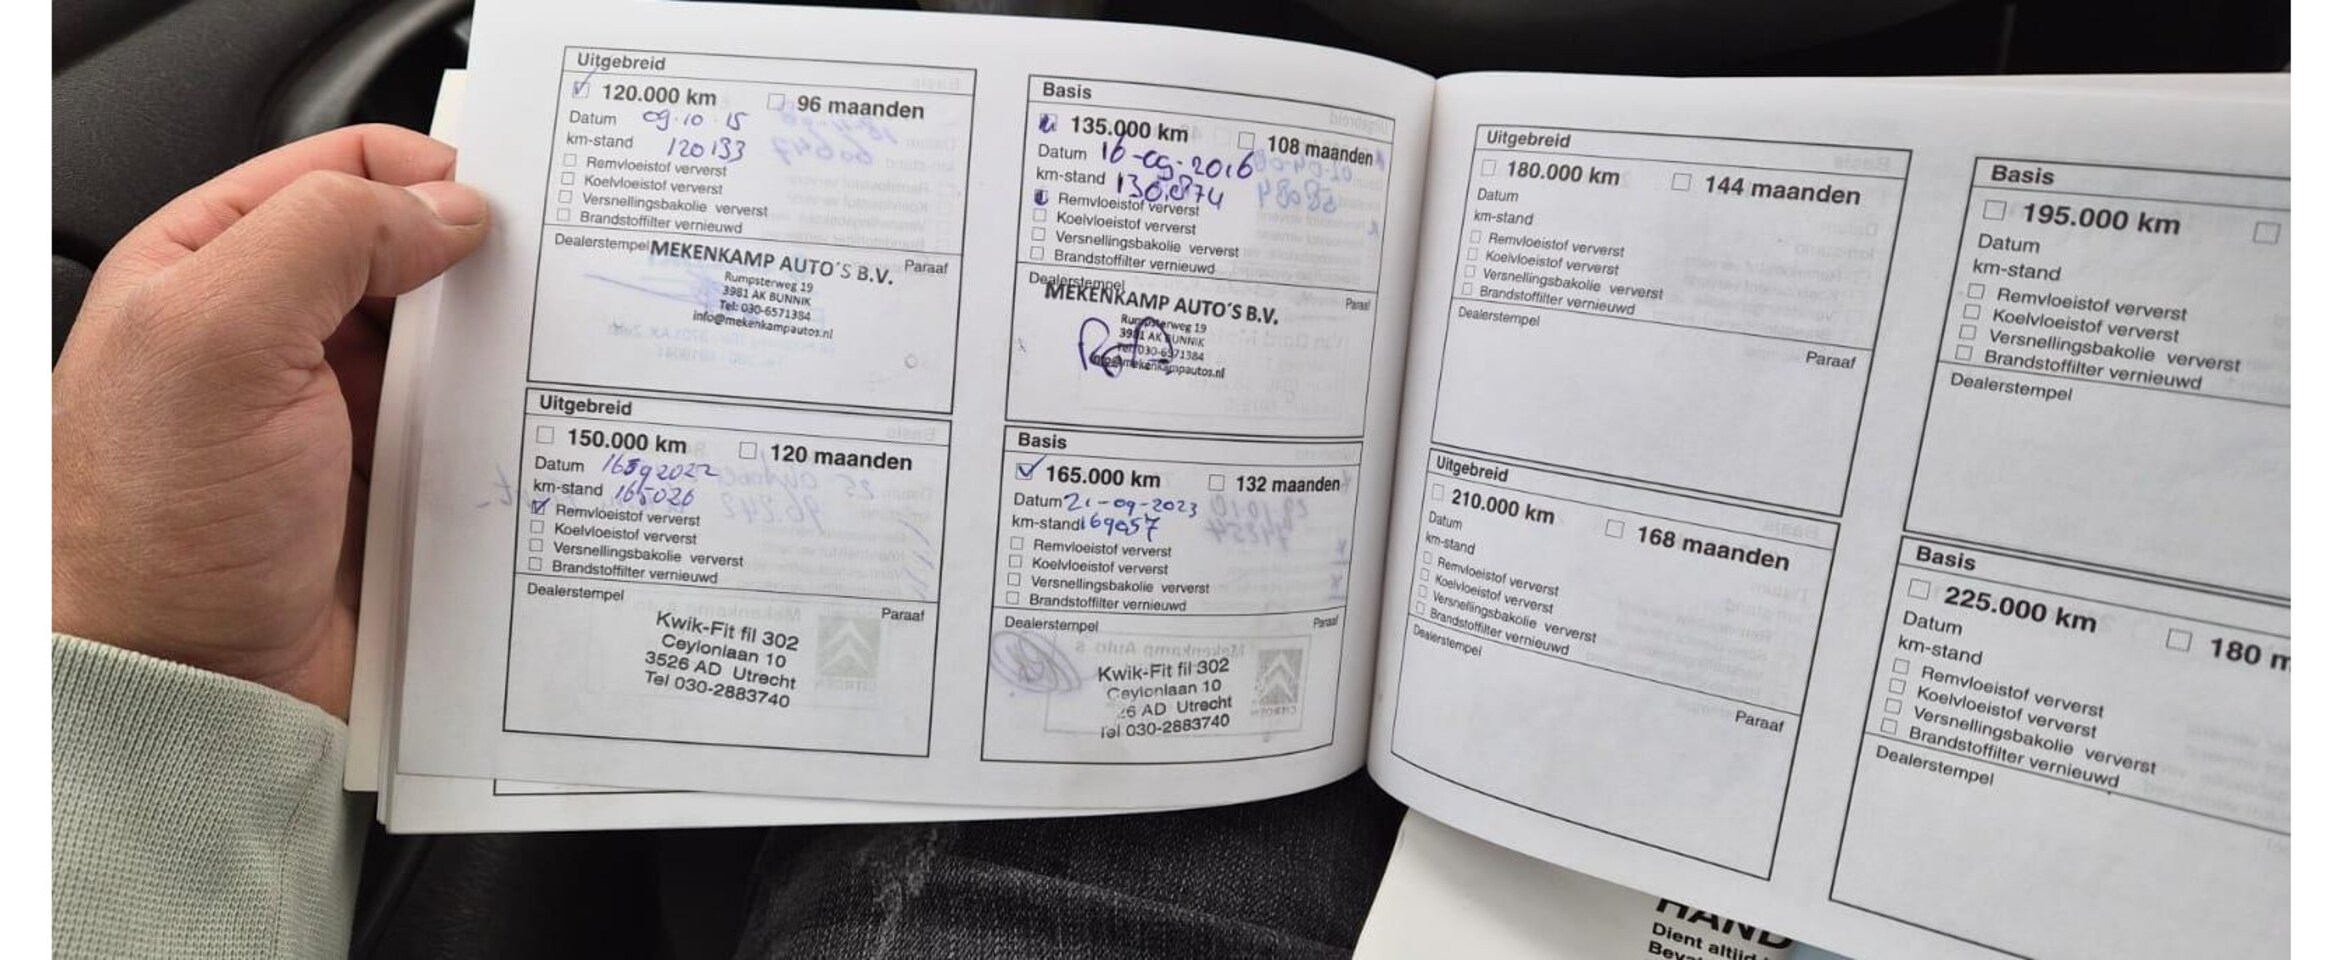 Uitgebreid
120.000 km 96 maanden
Datum 09-10-15
km-stand 120133
Remvloeistof ververst
Koelvloeistof ververst
Versnellingsbakolie ververst
Brandstoffilter vernieuwd
Dealerstempel Paraaf
MEKENKAMP AUTO'S B.V.
Rumpsterweg 19
3981 AK BUNNIK
Tel: 030-6571384
info@mekenkampautos.nl
Basis
135.000 km 108 maanden
Datum 16-09-2016
km-stand 130.874
Remvloeistof ververst
Koelvloeistof ververst
Versnellingsbakolie ververst
Brandstoffilter vernieuwd
Dealerstempel Paraaf
MEKENKAMP AUTO'S B.V.
Rumpsterweg 19
3981 AK BUNNIK
Tel: 030-6571384
info@mekenkampautos.nl
Uitgebreid
150.000 km 120 maanden
Datum 16 2022
km-stand 165026
Remvloeistof ververst
Koelvloeistof ververst
Versnellingsbakolie ververst
Brandstoffilter vernieuwd
Dealerstempel Paraaf
Kwik-Fit fil 302
Ceylonlaan 10
3526 AD Utrecht
Tel 030-2883740
Basis
165.000 km 132 maanden
Datum 21-09-2023
km-stand 169057
Remvloeistof ververst
Koelvloeistof ververst
Versnellingsbakolie ververst
Brandstoffilter vernieuwd
Dealerstempel Paraaf
Kwik-Fit fil 302
Ceylonlaan 10
26 AD Utrecht
Tel 030-2883740
Uitgebreid
180.000 km 144 maanden
Datum
km-stand
Remvloeistof ververst
Koelvloeistof ververst
Versnellingsbakolie ververst
Brandstoffilter vernieuwd
Dealerstempel
Paraaf
Basis
195.000 km
Datum
km-stand
Remvloeistof ververst
Koelvloeistof ververst
Versnellingsbakolie ververst
Brandstoffilter vernieuwd
Dealerstempel
Uitgebreid
210.000 km 168 maanden
Datum
km-stand
Remvloeistof ververst
Koelvloeistof ververst
Versnellingsbakolie ververst
Brandstoffilter vernieuwd
Dealerstempel
Paraaf
Basis
225.000 km 180 m
Datum
km-stand
Remvloeistof ververst
Koelvloeistof ververst
Versnellingsbakolie ververst
Brandstoffilter vernieuwd
Dealerstempel
HAND
Dient altijd
Beva